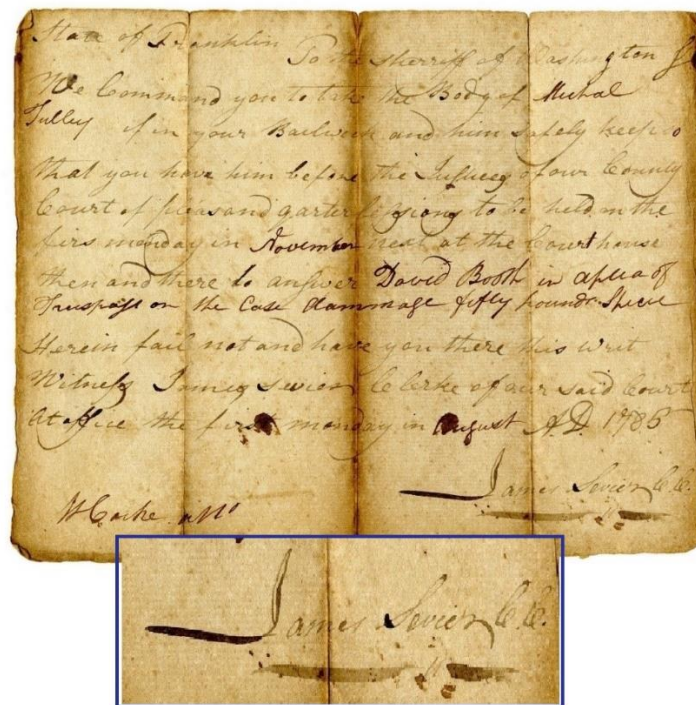 State of Franklin To the sherriff of Washington
We Command you to take the Body of Michal
Tulley if in your Bailwick and him safely keep so
that you have him before the Justices of our County
Court of pleas and quarter sessions to be held on the
firs monday in November next at the Courthouse
then and there to answer David Booth in a plea of
Trespass on the Case dammage fifty pounds Specie
Herein fail not and have you there this writ
Witness James Sevier Clerke of our said Court
At office the first monday in August A.D. 1786
James Sevier C.C.
W Cocke
James Sevier C.C.